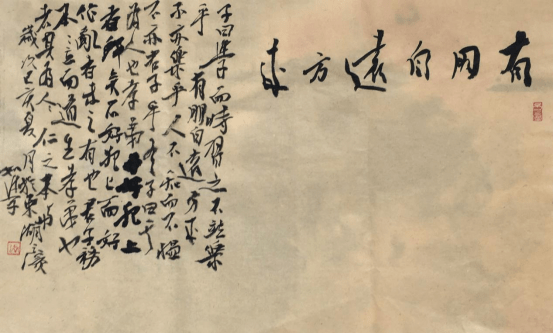 有朋自遠方来
子曰學而時習之不亦樂
乎有朋自遠方来
不亦樂乎人不知而不愠
不亦君子乎有子曰其
為人也孝弟而好犯上
者鮮矣不好犯上而好
作亂者未之有也君子務
本立而道生孝弟也
者其為人仁之本与
歲次己亥夏月於東湖